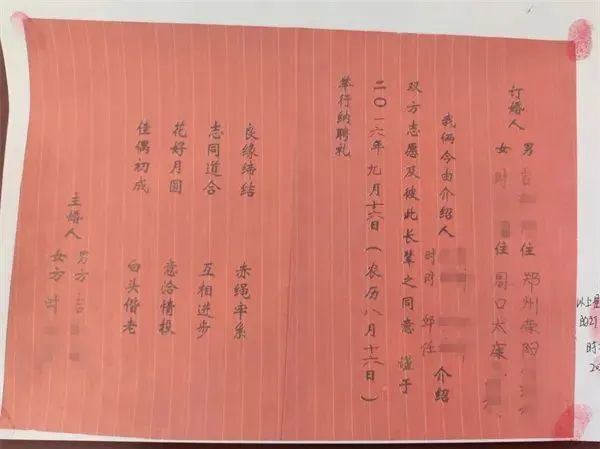 订婚人 男 吉 住 郑州荥阳
女 时 住 周口太康
我俩今由介绍人 时 邱 介绍
时 任
双方志愿及彼此长辈之同意 谨于
二〇一六年九月十六日(农历八月十六日)
举行纳聘礼
良缘缔结 赤绳牢系
志同道合 互相进步
花好月圆 意洽情投
佳偶初成 白头偕老
主婚人 男方 吉
女方 时
以上是
时
20